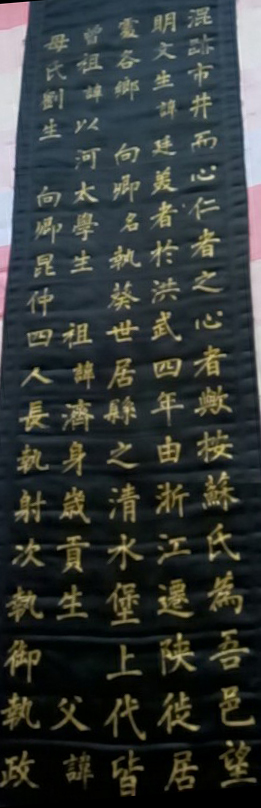 混跡市井而心仁者之心者歟按蘇氏為吾邑望
明文生諱廷羙者於洪武四年由浙江遷陝徙居
靈各鄉 向卿名執葵世居縣之清水堡上代皆
曾祖諱以河太學生 祖諱濟身歲貢生 父諱
母氏劉生 向卿昆仲四人長執射次執御執政